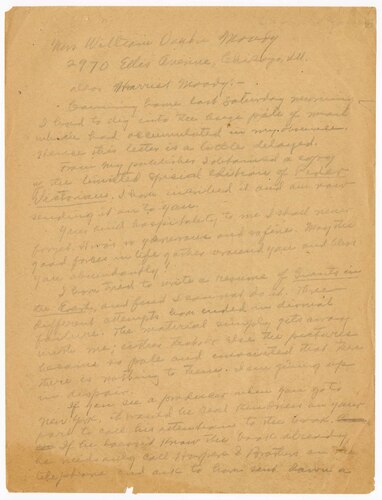 Mrs William Vaughn Moody
2970 Ellis Avenue, Chicago, Ill.
Dear Harriet Moody:-
Coming home last Saturday morning
I had to dig into the huge pile of mail
which had accumulated in my absence.
Hence this letter is a little delayed.
From my publisher I obtained a copy
of the limited special edition of
I have inscribed it and am now
sending it on to you.
Your kind hospitality to me I shall never
forget. It was so generous and
good forces in life gather around you and bless
you abundantly!
I have tried to write a resume of Giants in
the Earth, and find I can not do it. Three
different attempts have ended in dismal
failure. The material simply gets away
with me; either that or else the pictures
become so pale and that
there is nothing to them. I am giving up
in despair.
If you see a producer when you go to
New York, it would be a real kindness on your
part to call his attention to the book.
If he doesn't know the book already
he can easily call Harper & Brothers on the
telephone and ask to have sent down a